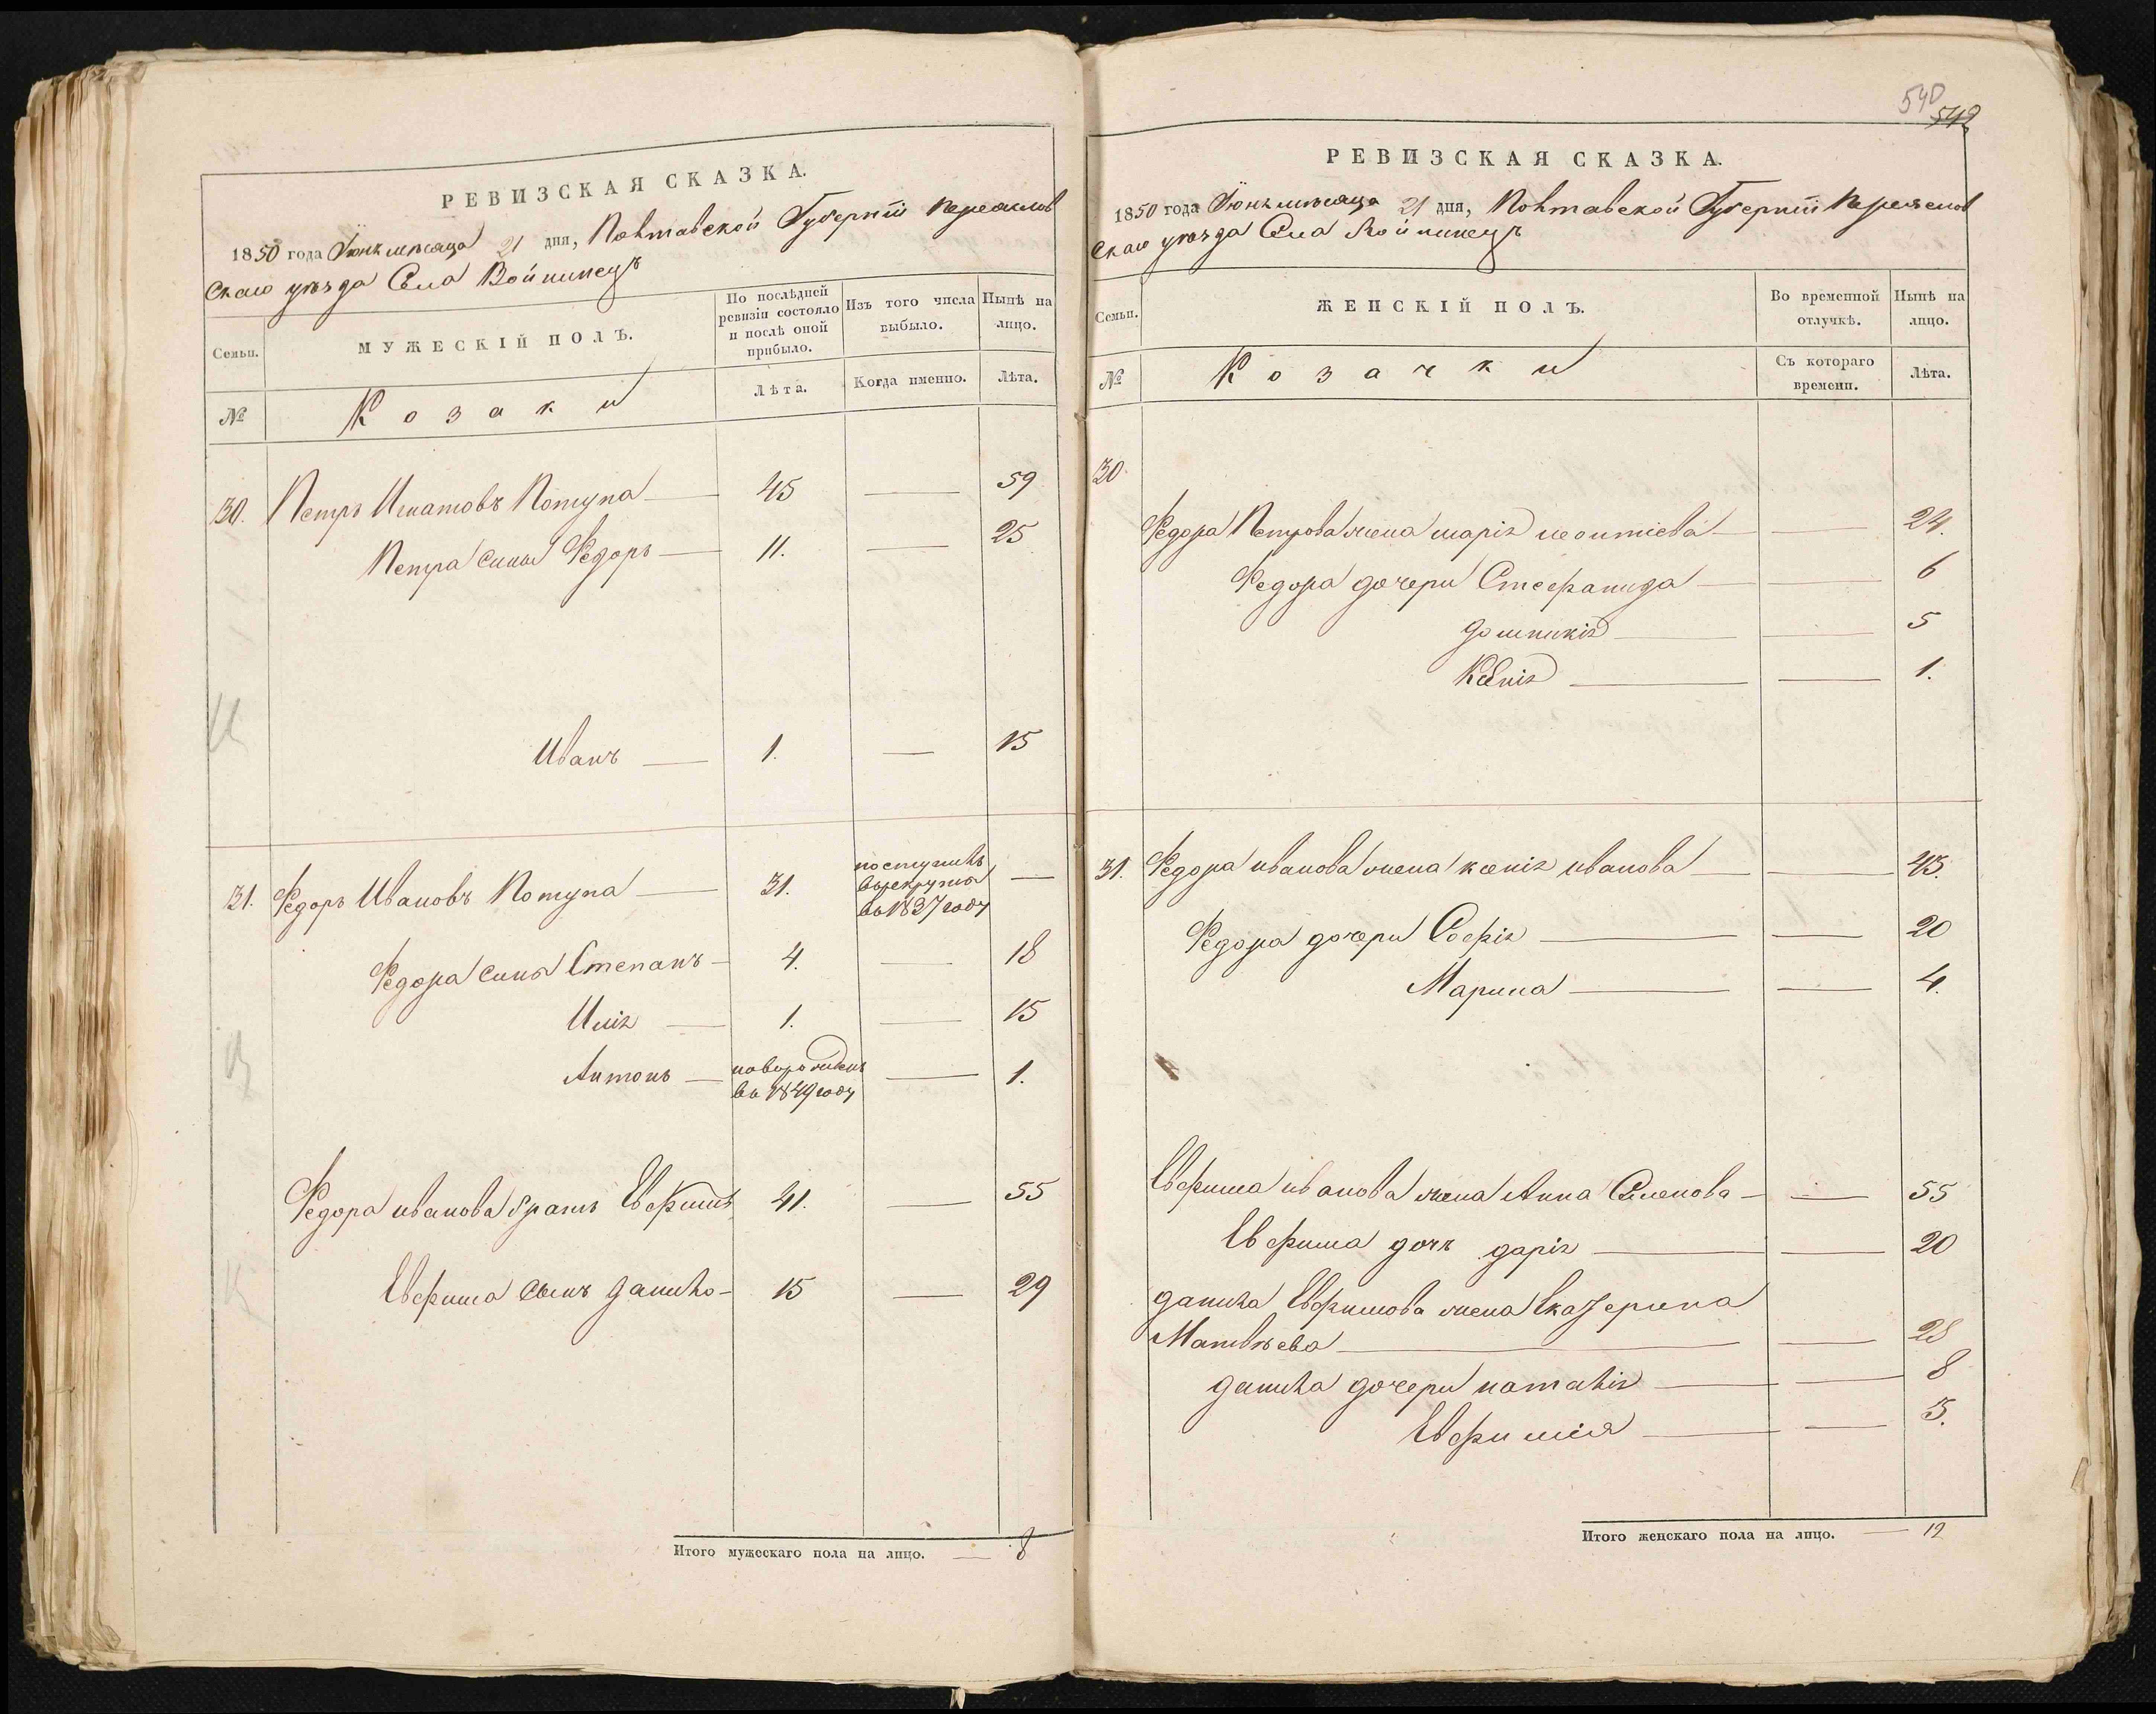 РЕВИЗСКАЯ СКАЗКА.
1850 года Іюнь месяца 21 дня, Полтавской Губерніи Переяслов
скаго уѣзда Села Войнинецъ
Семьи.
МУЖЕСКІЙ ПОЛЪ.
По послѣдней ревизіи состояло и послѣ оной прибыло.
Изъ того числа выбыло.
Нынѣ на лицо.
№
Козаки
Лѣта.
Когда именно.
Лѣта.
30. Петръ Игнатовъ Потупа — 45 — 59
Петра сины Федоръ — 11. — 25
Иванъ — 1. — 15
31. Федоръ Ивановъ Потупа — 31. поступилъ в рекруты в 1837 году —
Федора сины Степанъ — 4. — 18
Иліѧ — 1. — 15
Антонъ — новорожденъ в 1849 году — 1.
Федора иванова братъ Евфимъ 41. — 55
Евфима сынъ данило — 15 — 29
Итого мужескаго пола на лицо. — 8
540
542
РЕВИЗСКАЯ СКАЗКА.
1850 года Іюнь месяца 21 дня, Полтавской Губерніи Переяслов
скаго уѣзда Села Войнинецъ
Семьи.
ЖЕНСКІЙ ПОЛЪ.
Во временной отлучкѣ.
Нынѣ на лицо.
№
Козачки
Съ котораго времени.
Лѣта.
30.
Федора Петрова жена маріѧ леонтіева — — 24.
Федора дочери Стефанида — — 6
домникіѧ — — 5
Ксеніѧ — — 1.
31. Федора иванова жена ксеніѧ иванова — — 43.
Федора дочери Софіѧ — — 20
Марина — — 4.
Евфима иванова жена Анна Семенова — — 55
Евфима дочь даріѧ — — 20
данила Евфимова жена Екатерина
Матвѣева — — 28
данила дочери наталіѧ — — 8
Евфимія — — 5.
Итого женскаго пола на лицо. — 12